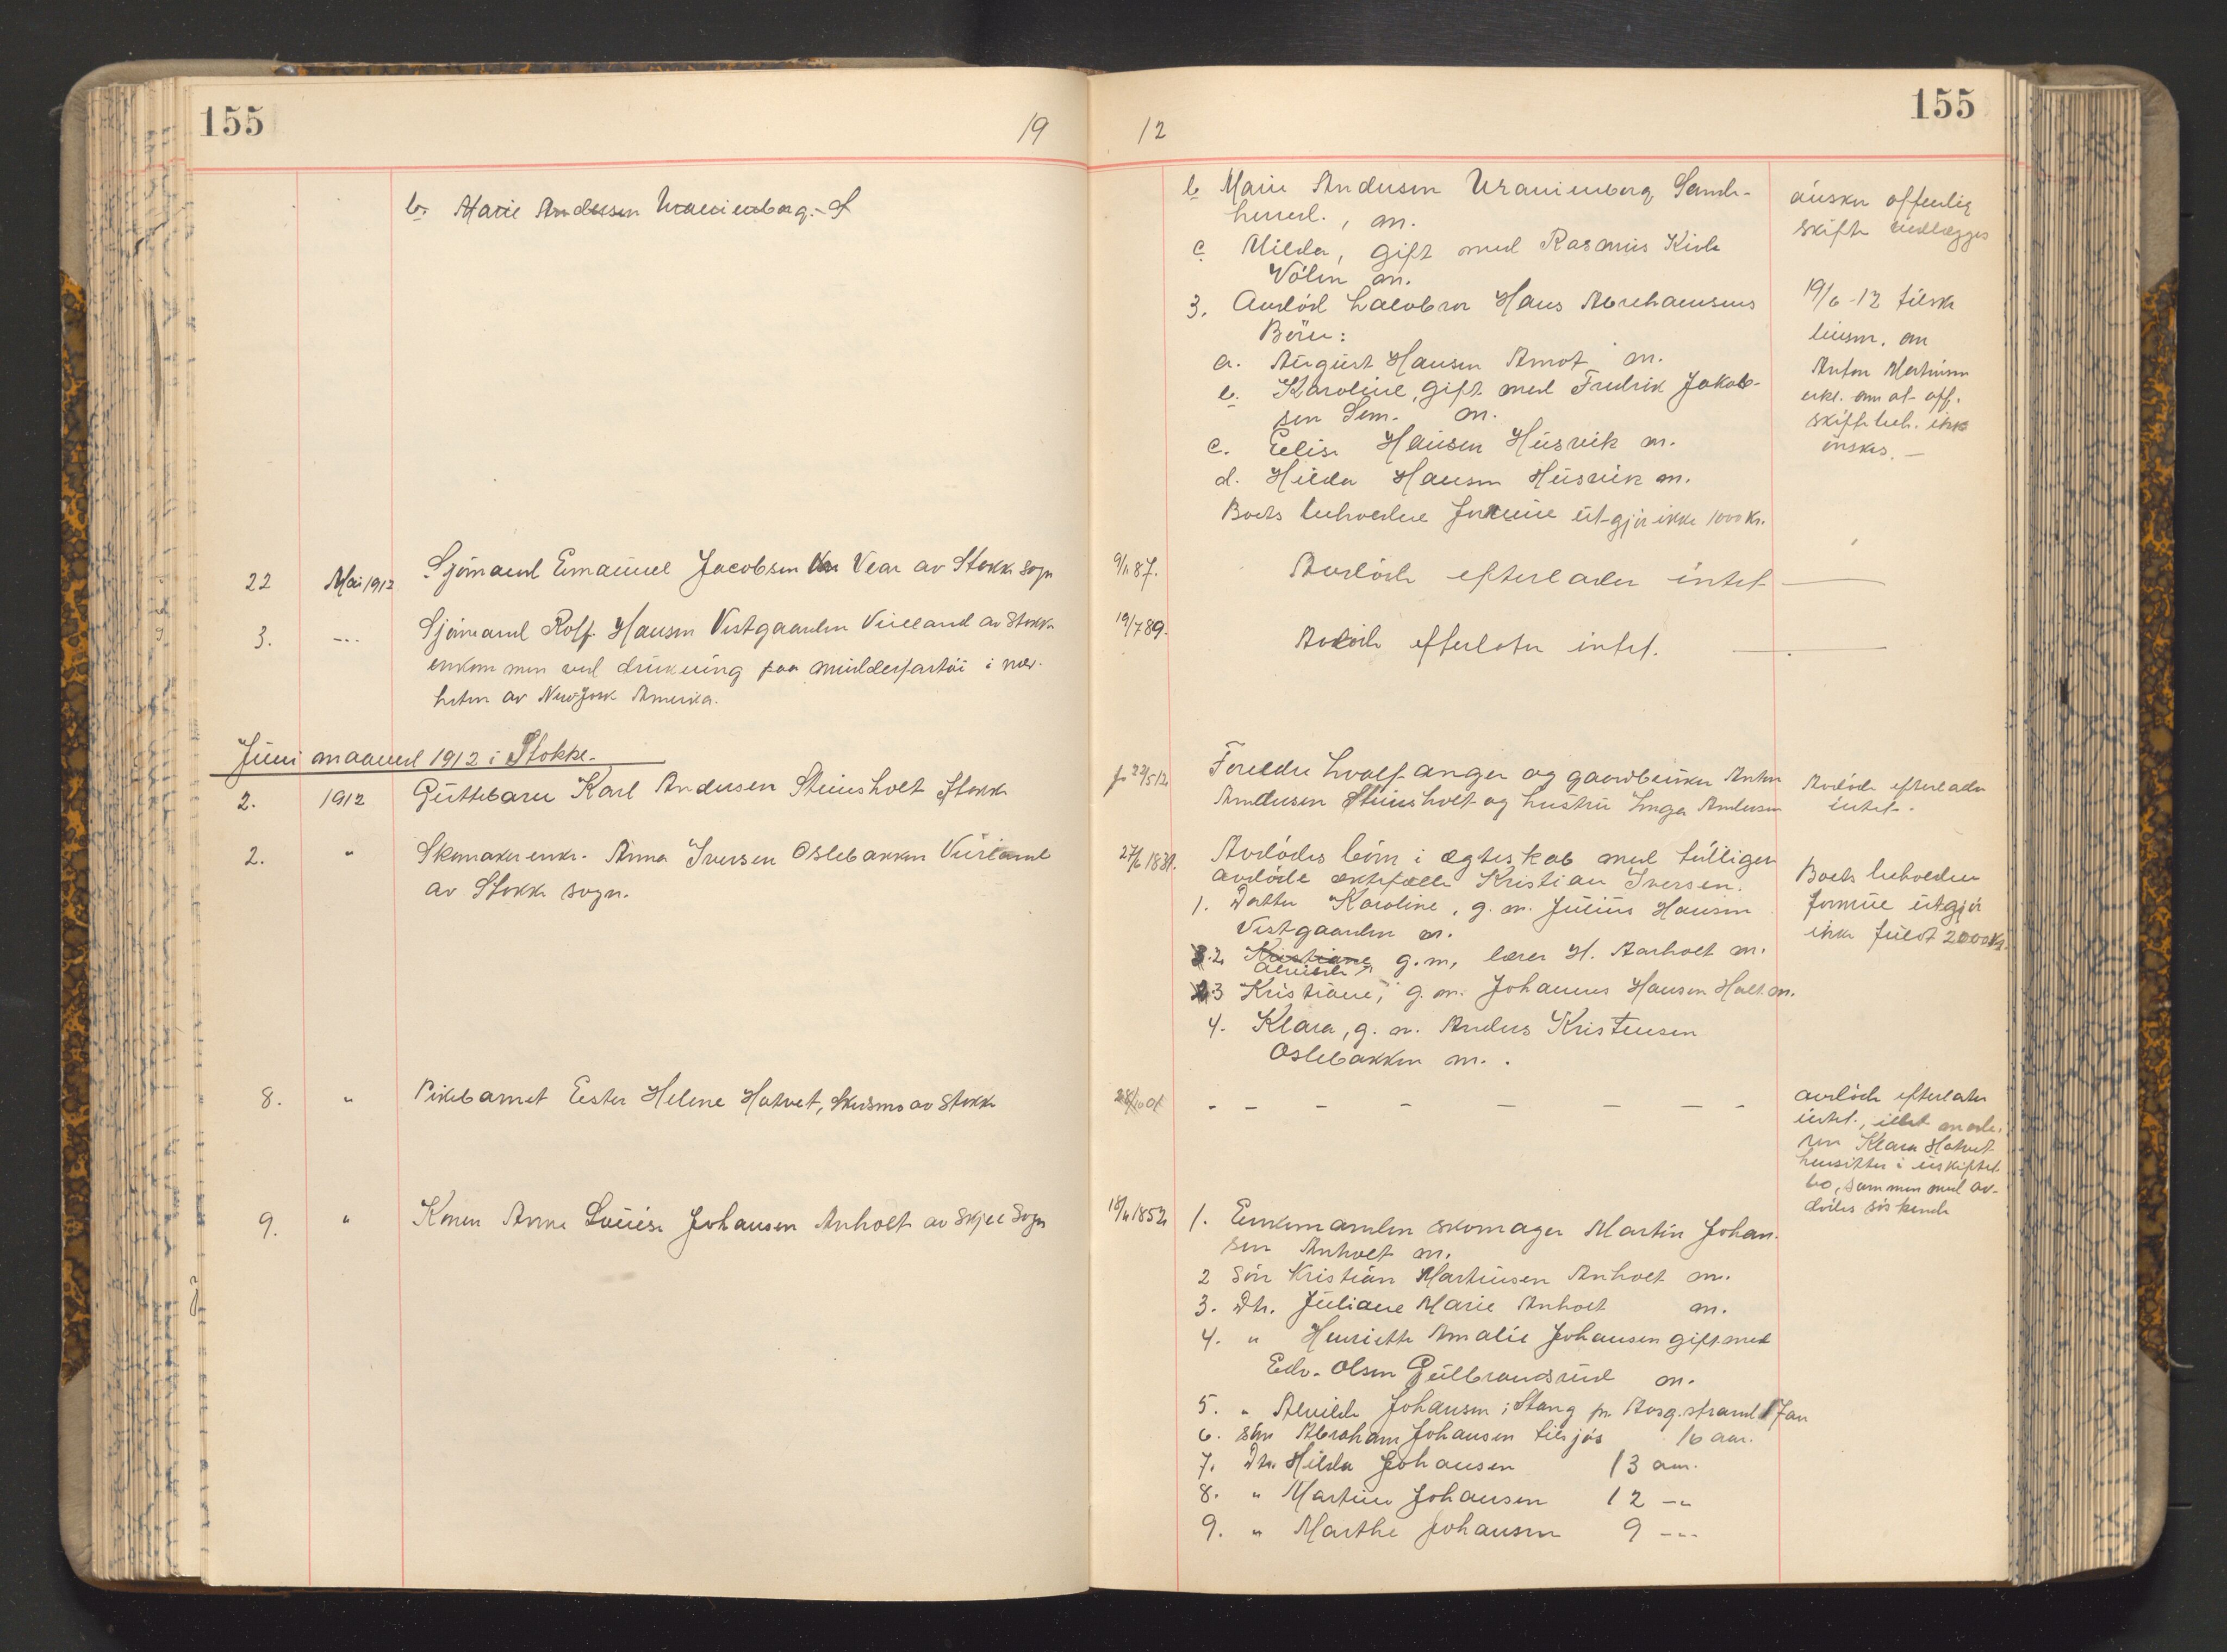 155
19
12
155
b. Marie Andersen Uranienborg. S
b Marie Andersen Uranienborg Sande-
herred., m.
c Hilda, gift med Rasmus Kirk
Volen m.
3. Avdöd halvbror Hans Abrahamsens
Börn:
a. August Hansen Amot m.
b. Karoline, gift med Fredrik Jakob-
sen Sem. m.
c. Elise Hansen Husvik m.
d. Hilda Hansen Husvik m.
Boets beholdne Formue utgjör ikke 1000 Kr.
önsker offentlig
skifte
19/6-12 tilsk
lensm. om
Anton Martinsen
erkl. om at off.
skiftebeh. ikke
önskes. —
22 Mai 1912 Sjömand Emanuel Jacobsen Vear av Stokke sogn
9/1 87. Avdöde efterlader intet —
3. -"- Sjömand Rolf Hansen Vestgaarden Viveland av Stokke
omkommen ved drukning paa mudderfartöi i nær-
heten av New York Amerika.
19/7 89. Avdöde efterlater intet. —
Juni maaned 1912 i Stokke.
2. 1912 Guttebarn Karl Andersen Steinsholt Stokke
f 22/5 12 Foreldre hvalfanger og gaardbruker Anton
Andersen Steinsholt og hustru Inga Andersen
Avdöde efterlader
intet.
2. " Skomaker enke. Anna Iversen Oslebakken Vivland
av Stokke sogn.
27/6 1831. Avdödes börn i ægteskab med tidligere
avdöde ektefælle Kristian Iversen.
1. Datter Karoline, g. m. Julius Hansen
Vestgaarden m.
2 Kristiane g. m. lærer H. Aarholt m.
Alvilde
3 Kristiane, g. m. Johannes Hansen Holt m.
4. Klara, g. m. Anders Kristensen
Oslebakken m.
Boets beholdne
formue utgjör
ikke fuldt 2000 Kr.
8. " Pikebarnet Ester Helene Hotvet, Skusmo av Stokke
28/10 01 - - - - - - - -
avdöde efterlater
intet, idet mode-
ren Klara Hotvet
hensitter i uskiftet
bo, sammen med av-
dödes söskende
9. " Konen Anne Louise Johansen Anholt av Skjee Sogn
18/11 1852 1. Enkemanden skomager Martin Johan-
sen Anholt m.
2 Sön Kristian Martinsen Anholt m.
3. Dtr. Juliane Marie Anholt m.
4. " Henriette Amalie Johansen gift med
Edv. Olsen Gulbrandsrud m.
5. " Alvilde Johansen i Stang pr Aasg.strand 17 aar
6. Sön Abraham Johansen tilsjös 16 aar.
7. Dtr. Hilda Johansen 13 aar.
8. " Martine Johansen 12 -"-
9. " Marthe Johansen 9 -"-